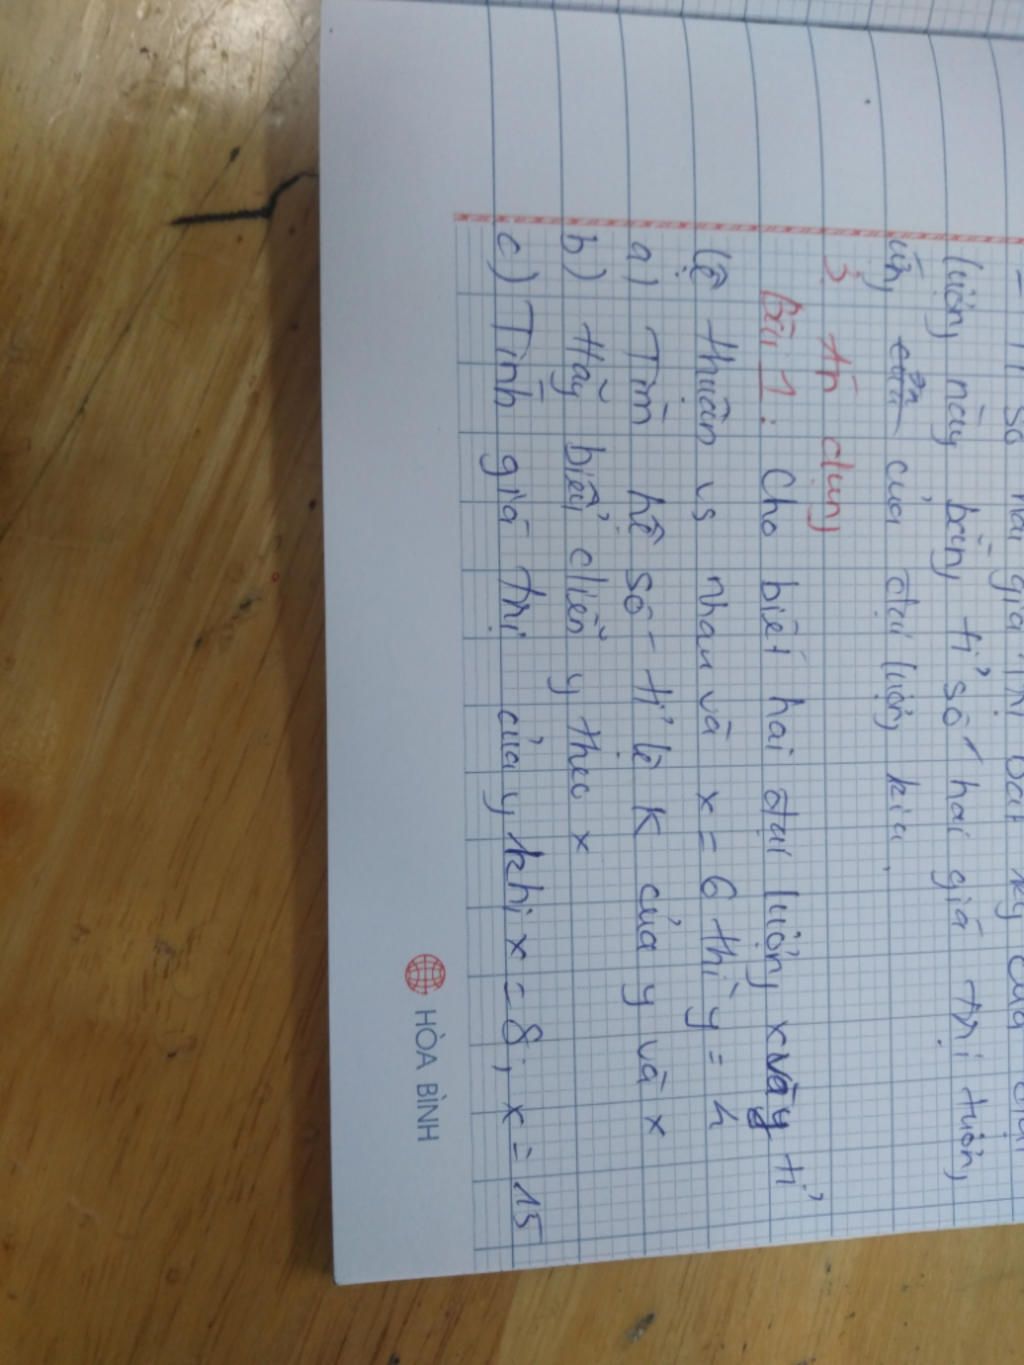 - Tỉ số hai giá trị bất kỳ của đại
lượng này bằng tỉ số hai giá trị tương
ứng của đại lượng kia.
3. Áp dụng
Bài 1: Cho biết hai đại lượng x và y tỉ
lệ thuận vs nhau và x = 6 thì y = 4
a) Tìm hệ số tỉ lệ K của y và x
b) Hãy biểu diễn y theo x
c) Tính giá trị của y khi x = 8; x = 15
HÒA BÌNH